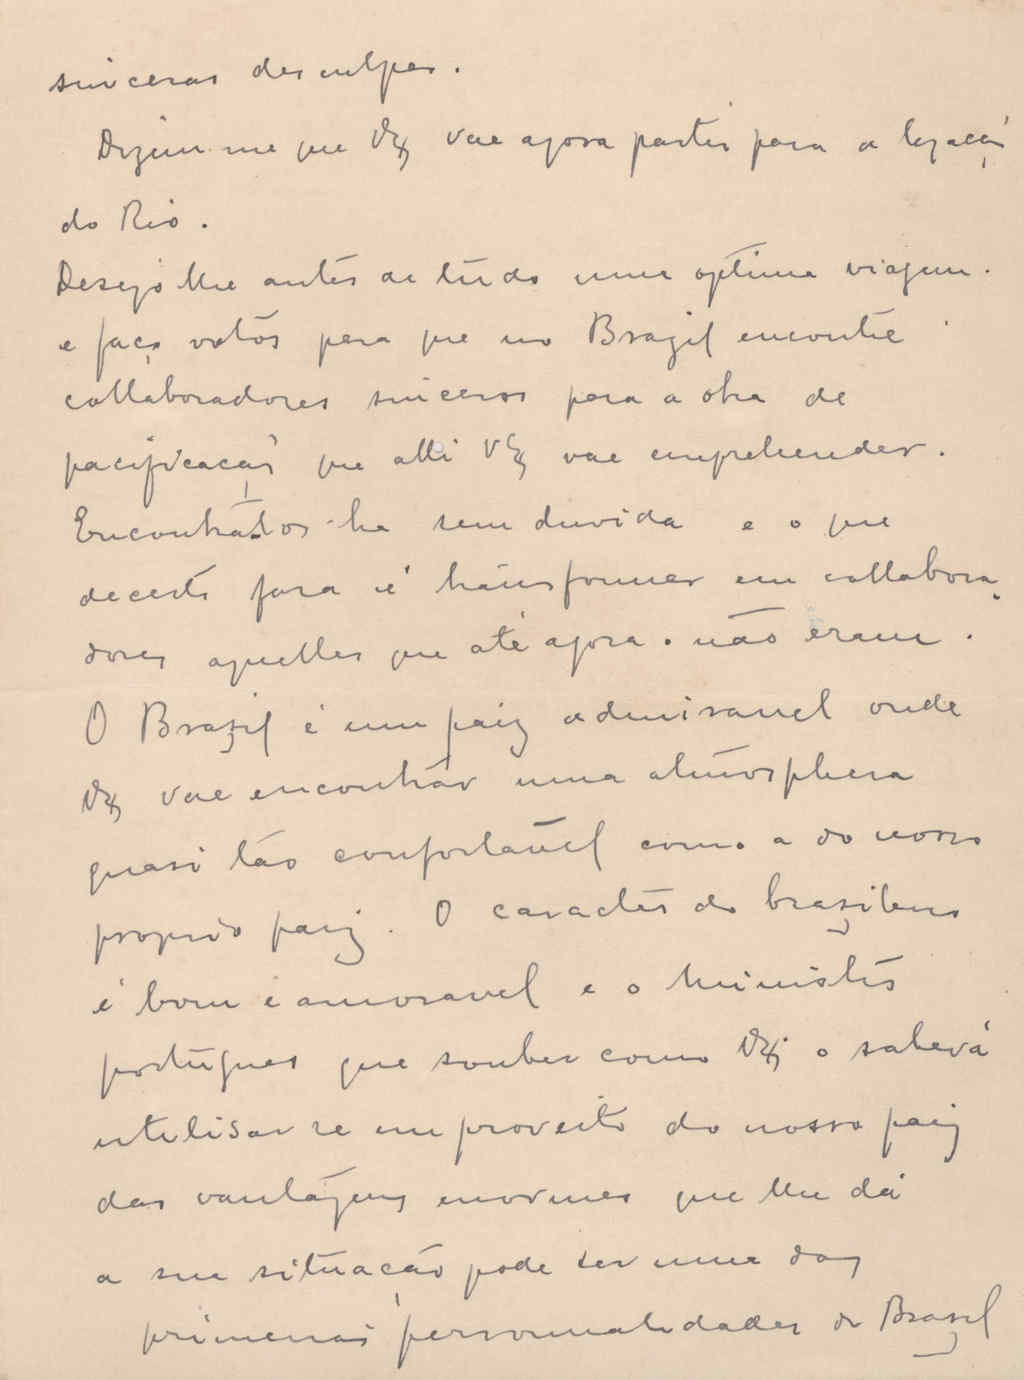 sinceras desculpas.
Dizem-me que VEx vae agora partir para a legação
do Rio.
Desejo lhe antes de tudo uma optima viagem.
e faço votos para que no Brazil encontre
collaboradores sinceros para a obra de
pacificação que alli VEx vae emprehender.
Encontral-os-ha sem duvida e o que
decerto fara é transformar em collabora-
dores aquelles que até agora o não eram.
O Brazil é um paiz admiravel onde
VEx vae encontrar uma atmosphera
quasi tão confortavel como a do nosso
proprio paiz. O caracter do brazileiro
é bom e amoravel e o Ministro
portuguez que souber como VEx o saberá
utilisar se em proveito do nosso paiz
das vantagens enormes que lhe dá
a sua situação pode ser uma das
primeiras personalidades do Brazil